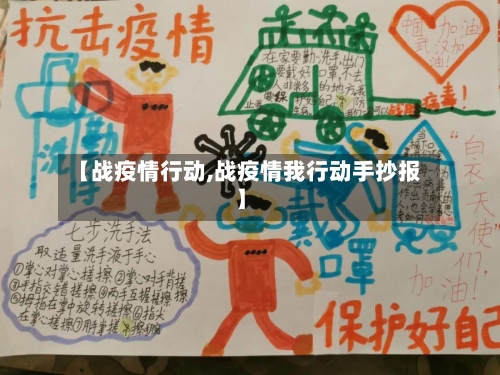 抗击疫情
在家要勤洗手出门
要戴好口罩,不去
人非常多的地方
中国加油
武汉加
油!
战胜病毒!
勤
洗手
【战疫情行动,战疫情我行动手抄报
】
"白衣天使"
们
加油!
戴
口罩
七步洗手法
取适量洗手液于手心
①掌心对掌心搓擦②掌心对手背搓擦
③手指交错搓擦④两手互握搓擦
⑤拇指在掌中旋转搓擦⑥指尖
在掌心搓擦⑦
保护好自己